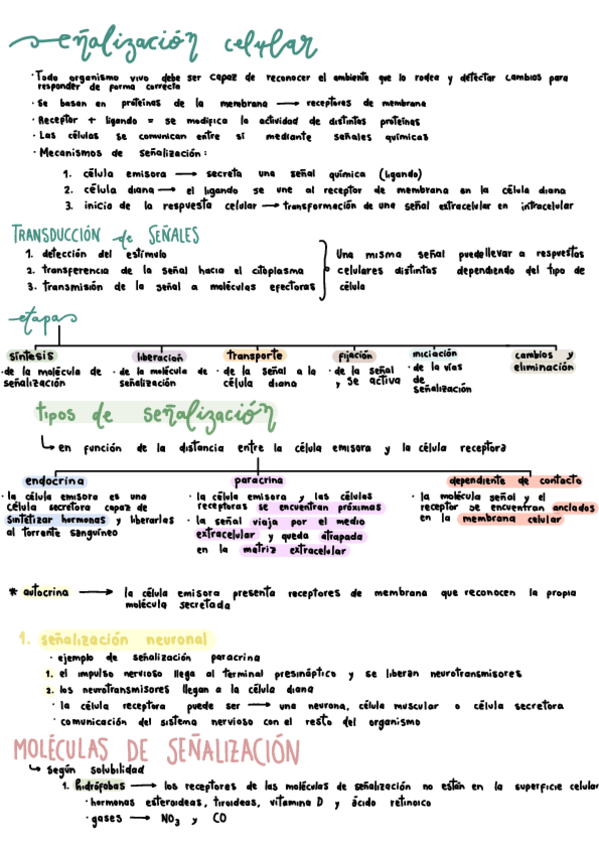 Señalización celular
· Todo organismo vivo debe ser capaz de reconocer el ambiente que lo rodea y detectar cambios para
responder de forma correcta
· Se basan en proteínas de la membrana → receptores de membrana
· Receptor + ligando = se modifica la actividad de distintas proteínas
· Las células se comunican entre sí mediante señales químicas
· Mecanismos de señalización:
1. célula emisora → secreta una señal química (ligando)
2. célula diana → el ligando se une al receptor de membrana en la célula diana
3. inicio de la respuesta celular → transformación de una señal extracelular en intracelular
TRANSDUCCIÓN de SEÑALES
1. detección del estímulo
2. transferencia de la señal hacia el citoplasma
3. transmisión de la señal a moléculas efectoras
Una misma señal puede llevar a respuestas
celulares distintas dependiendo del tipo de
célula
etapas
síntesis
· de la molécula de
señalización
liberación
· de la molécula de
señalización
transporte
· de la señal a la
célula diana
fijación
· de la señal
y se activa
iniciación
· de la vías
de
señalización
cambios y
eliminación
tipos de señalización
en función de la distancia entre la célula emisora y la célula receptora
endocrina
· la célula emisora es una
célula secretora capaz de
sintetizar hormonas y liberarlas
al torrente sanguíneo
paracrina
· la célula emisora y las células
receptoras se encuentran próximas
· la señal viaja por el medio
extracelular y queda atrapada
en la matriz extracelular
dependiente de contacto
· la molécula señal y el
receptor se encuentran anclados
en la membrana celular
* autocrina → la célula emisora presenta receptores de membrana que reconocen la propia
molécula secretada
1. señalización neuronal
· ejemplo de señalización paracrina
1. el impulso nervioso llega al terminal presináptico y se liberan neurotransmisores
2. los neurotransmisores llegan a la célula diana
· la célula receptora puede ser → una neurona, célula muscular o célula secretora
· comunicación del sistema nervioso con el resto del organismo
MOLÉCULAS DE SEÑALIZACIÓN
según solubilidad
1. hidrófobas → los receptores de las moléculas de señalización no están en la superficie celular
· hormonas esteroideas, tiroideas, vitamina D y ácido retinoico
· gases → NO₃ y CO